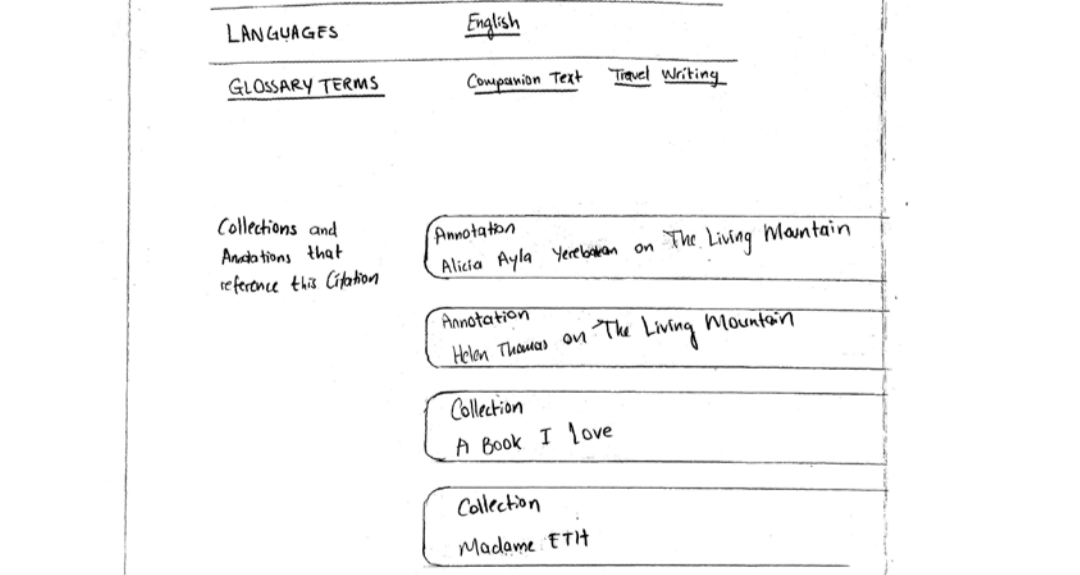 LANGUAGES English
GLOSSARY TERMS Companion Text Travel Writing
Collections and
Annotations that
reference this Citation
Annotation
Alicia Ayla Yerebakan on The Living Mountain
Annotation
Helen Thomas on The Living Mountain
Collection
A Book I Love
Collection
Madame ETH